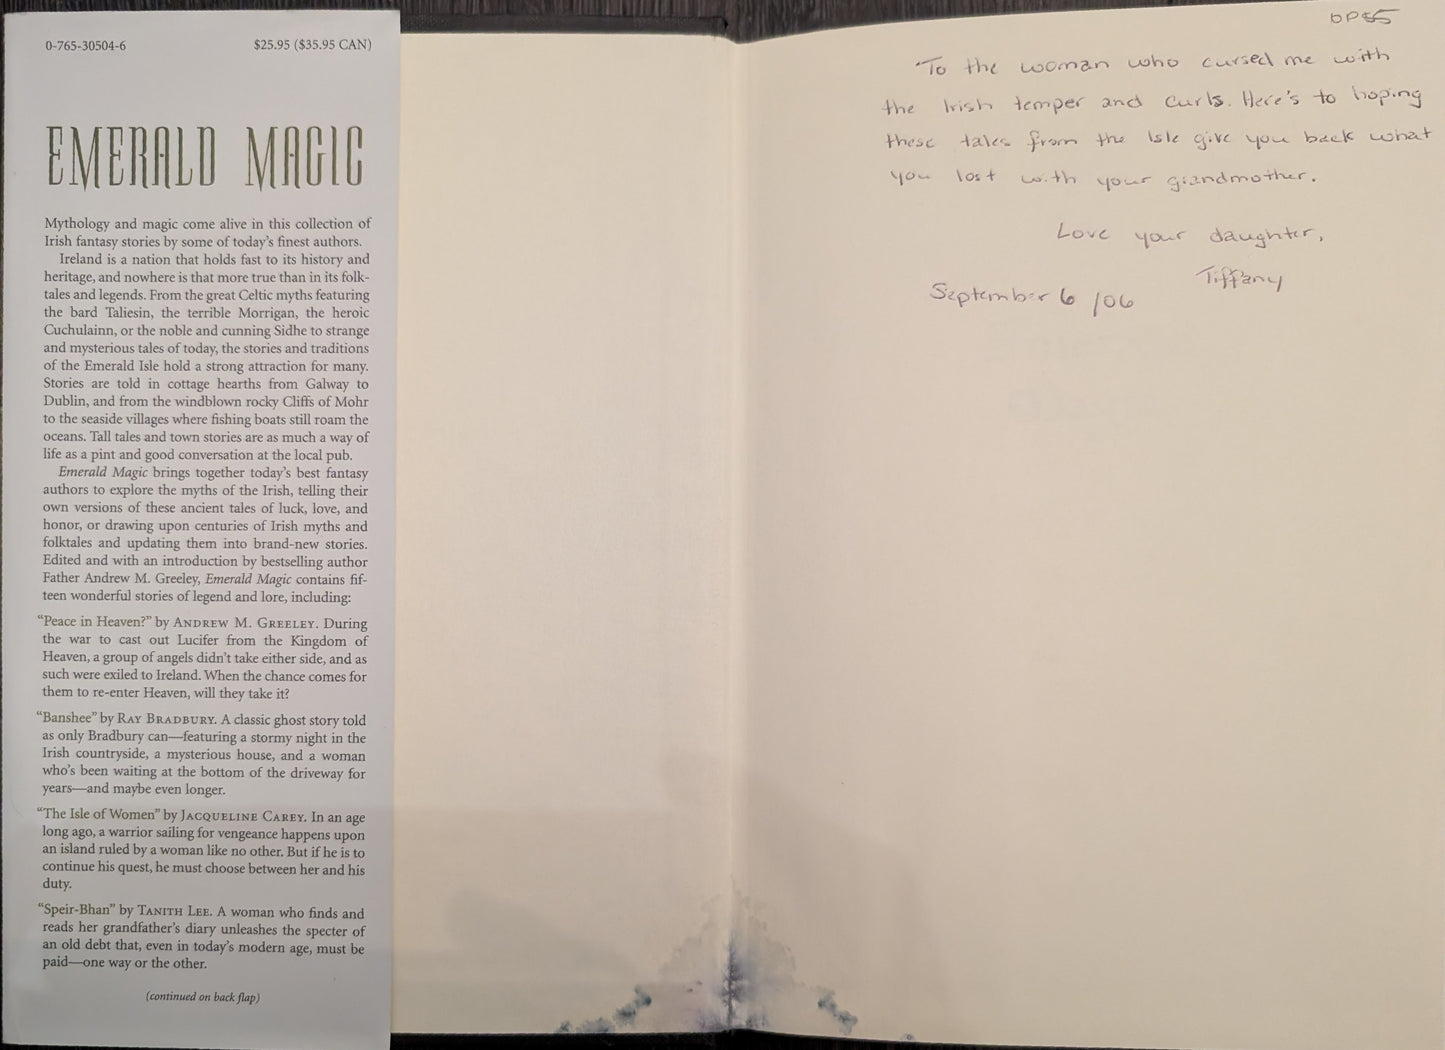 0-765-30504-6 $25.95 ($35.95 CAN)
EMERALD MAGIC
Mythology and magic come alive in this collection of
Irish fantasy stories by some of today's finest authors.
Ireland is a nation that holds fast to its history and
heritage, and nowhere is that more true than in its folk-
tales and legends. From the great Celtic myths featuring
the bard Taliesin, the terrible Morrigan, the heroic
Cuchulainn, or the noble and cunning Sidhe to strange
and mysterious tales of today, the stories and traditions
of the Emerald Isle hold a strong attraction for many.
Stories are told in cottage hearths from Galway to
Dublin, and from the windblown rocky Cliffs of Mohr
to the seaside villages where fishing boats still roam the
oceans. Tall tales and town stories are as much a way of
life as a pint and good conversation at the local pub.
Emerald Magic brings together today's best fantasy
authors to explore the myths of the Irish, telling their
own versions of these ancient tales of luck, love, and
honor, or drawing upon centuries of Irish myths and
folktales and updating them into brand-new stories.
Edited and with an introduction by bestselling author
Father Andrew M. Greeley, Emerald Magic contains fif-
teen wonderful stories of legend and lore, including:
"Peace in Heaven?" by ANDREW M. GREELEY. During
the war to cast out Lucifer from the Kingdom of
Heaven, a group of angels didn't take either side, and as
such were exiled to Ireland. When the chance comes for
them to re-enter Heaven, will they take it?
"Banshee" by RAY BRADBURY. A classic ghost story told
as only Bradbury can—featuring a stormy night in the
Irish countryside, a mysterious house, and a woman
who's been waiting at the bottom of the driveway for
years—and maybe even longer.
"The Isle of Women" by JACQUELINE CAREY. In an age
long ago, a warrior sailing for vengeance happens upon
an island ruled by a woman like no other. But if he is to
continue his quest, he must choose between her and his
duty.
"Speir-Bhan" by TANITH LEE. A woman who finds and
reads her grandfather's diary unleashes the specter of
an old debt that, even in today's modern age, must be
paid—one way or the other.
(continued on back flap)
To the woman who cursed me with
the Irish temper and curls. Here's to hoping
these tales from the Isle give you back what
you lost with your grandmother.
Love your daughter,
Tiffany
September 6 /06